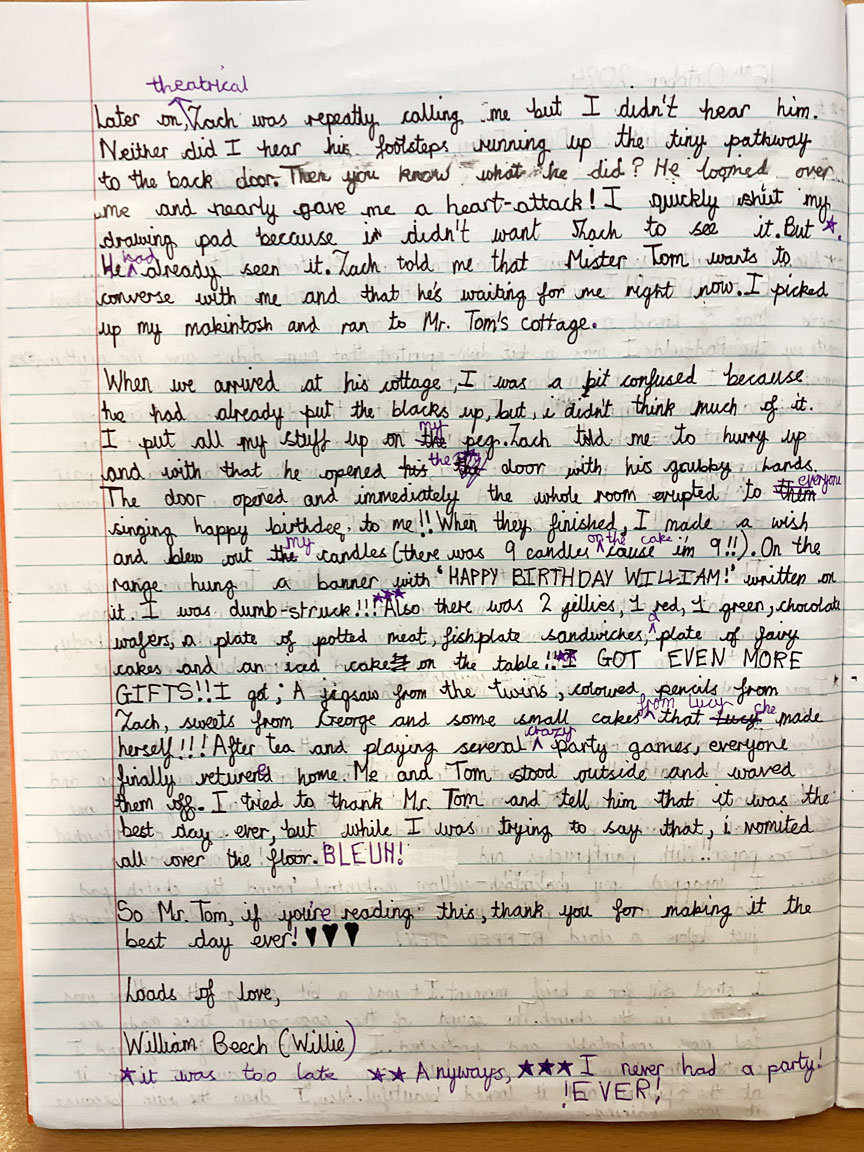 theatrical
Later on, Zach was repeatly calling me but I didn't hear him.
Neither did I hear his footsteps running up the tiny pathway
to the back door. Then you know what he did? He loomed over
me and nearly gave me a heart-attack! I quickly shut my
drawing pad because i didn't want Zach to see it. But *.
He had already seen it. Zach told me that Mister Tom wants to
converse with me and that he's waiting for me right now. I picked
up my makintosh and ran to Mr. Tom's cottage.
When we arrived at his cottage, I was a bit confused because
he had already put the blacks up, but, i didn't think much of it.
I put all my stuff up on the my peg. Zach told me to hurry up
and with that he opened his the door with his grubby hands.
The door opened and immediately the whole room erupted to them everyone
singing happy birthdee, to me!! When they finished, I made a wish
and blew out the my candles (there was 9 candles on the cake cause i'm 9!!). On the
range hung a banner with 'HAPPY BIRTHDAY WILLIAM!' written on
it. I was dumb-struck!!! *** Also there was 2 jillies, 1 red, 1 green, chocolate
wafers, a plate of potted meat, fishplate sandwiches, a plate of fairy
cakes and an iced cake on the table!! ** I GOT EVEN MORE
GIFTS!! I got; A jigsaw from the twins, coloured pencils from
Zach, sweats from George and some small cakes from Lucy that Lucy she made
herself!!! After tea and playing several crazy party games, everyone
finally retured home. Me and Tom stood outside and waved
them off. I tried to thank Mr. Tom and tell him that it was the
best day ever, but while I was trying to say that, i vomited
all over the floor. BLEUH!
So Mr. Tom, if you're reading this, thank you for making it the
best day ever! ♥♥♥
Loads of love,
William Beech (Willie)
*it was too late ** Anyways, *** I never had a party!
!EVER!